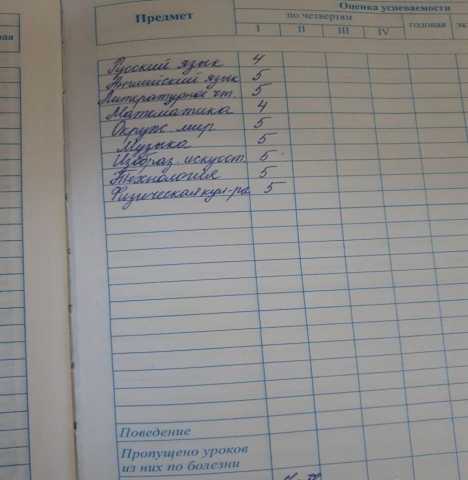 Предмет
Оценка успеваемости
по четвертям
годовая
I II III IV
Русский язык 4
Английский язык 5
Литературное чт. 5
Математика 4
Окруж. мир 5
Музыка 5
Изобраз. искусст. 5
Технология 5
Физическая кул-ра 5
Поведение
Пропущено уроков
из них по болезни